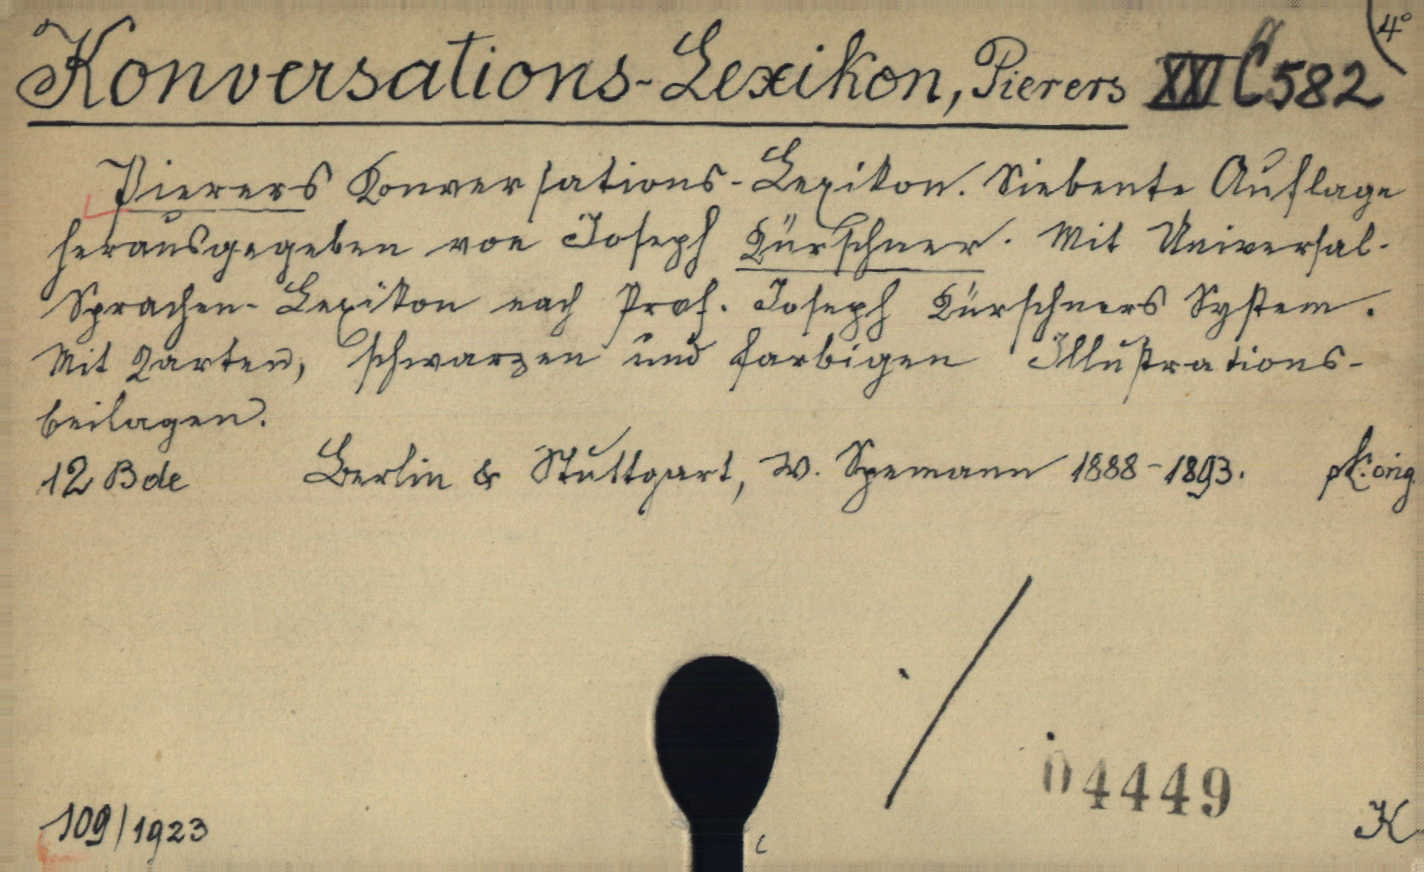 4°
Konversations-Lexikon, Pierers XXI C 582
Pierers Konversations-Lexikon. Siebente Auflage
herausgegeben von Joseph Kürschner. Mit Universal-
Sprachen-Lexikon nach Prof. Joseph Kürschners System.
Mit Karten, schwarzen und farbigen Illustrations-
beilagen.
12 Bde Berlin & Stuttgart, W. Spemann 1888-1893. orig.
04449
109/1923 K